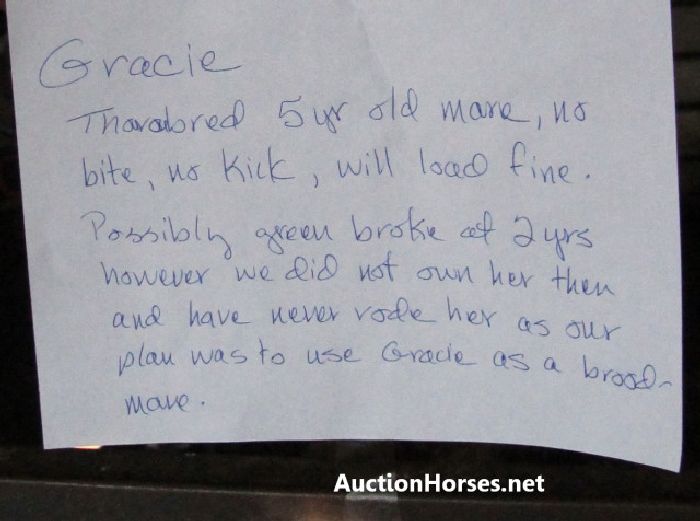 Gracie
Thorabred 5 yr old mare, no
bite, no kick, will load fine.
Possibly green broke at 2 yrs
however we did not own her then
and have never rode her as our
plan was to use Gracie as a brood-
mare.
AuctionHorses.net